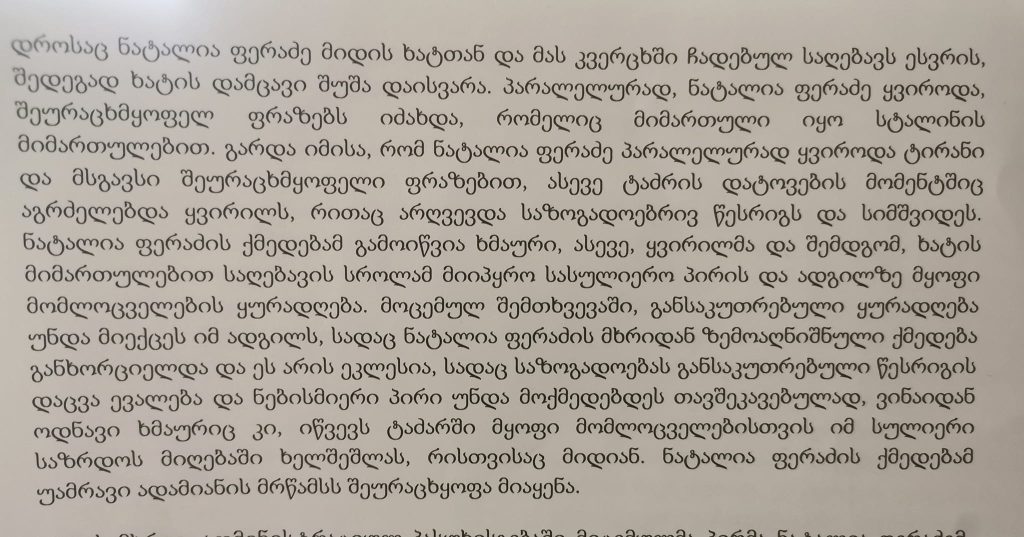 დროსაც ნატალია ფერაძე მიდის ხატთან და მას კვერცხში ჩადებულ საღებავს ესვრის,
შედეგად ხატის დამცავი შუშა დაისვარა. პარალელურად, ნატალია ფერაძე ყვიროდა,
შეურაცხმყოფელ ფრაზებს იძახდა, რომელიც მიმართული იყო სტალინის
მიმართულებით. გარდა იმისა, რომ ნატალია ფერაძე პარალელურად ყვიროდა ტირანი
და მსგავსი შეურაცხმყოფელი ფრაზებით, ასევე ტაძრის დატოვების მომენტშიც
აგრძელებდა ყვირილს, რითაც არღვევდა საზოგადოებრივ წესრიგს და სიმშვიდეს.
ნატალია ფერაძის ქმედებამ გამოიწვია ხმაური, ასევე, ყვირილმა და შემდგომ, ხატის
მიმართულებით საღებავის სროლამ მიიპყრო სასულიერო პირის და ადგილზე მყოფი
მომლოცველების ყურადღება. მოცემულ შემთხვევაში, განსაკუთრებული ყურადღება
უნდა მიექცეს იმ ადგილს, სადაც ნატალია ფერაძის მხრიდან ზემოაღნიშნული ქმედება
განხორციელდა და ეს არის ეკლესია, სადაც საზოგადოებას განსაკუთრებული წესრიგის
დაცვა ევალება და ნებისმიერი პირი უნდა მოქმედებდეს თავშეკავებულად, ვინაიდან
ოდნავი ხმაურიც კი, იწვევს ტაძარში მყოფი მომლოცველებისთვის იმ სულიერი
საზრდოს მიღებაში ხელშეშლას, რისთვისაც მიდიან. ნატალია ფერაძის ქმედებამ
უამრავი ადამიანის მრწამსს შეურაცხყოფა მიაყენა.